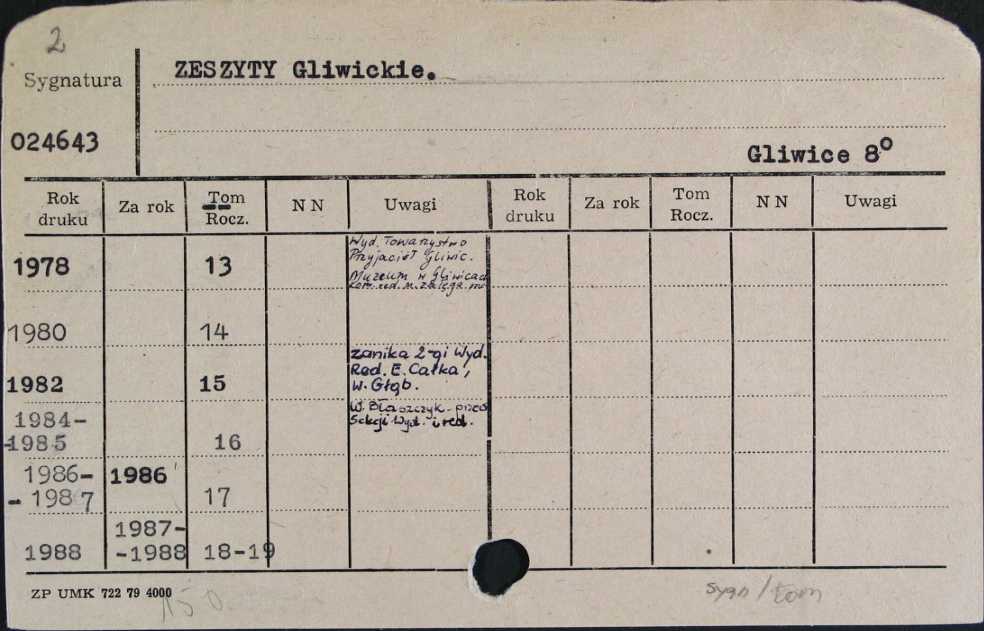 2
Sygnatura
ZESZYTY Gliwickie.
024643
Gliwice 8°
Rok druku Za rok Tom Rocz. N N Uwagi Rok druku Za rok Tom Rocz. N N Uwagi
1978 13 Wyd. Towarzystwo
Przyjaciół Gliwic.
Muzeum w Gliwicach
Kom. red. M. Zalęga
1980 14
1982 15 zanika 2-gi Wyd.
Red. E. Całka,
W. Głąb.
1984-
-1985 16 W. Błaszczyk-
Sekcji Wyd. i red.
1986-
- 1987 1986 17
1988 1987-
-1988 18-19
ZP UMK 722 79 4000
150
sygn/tom